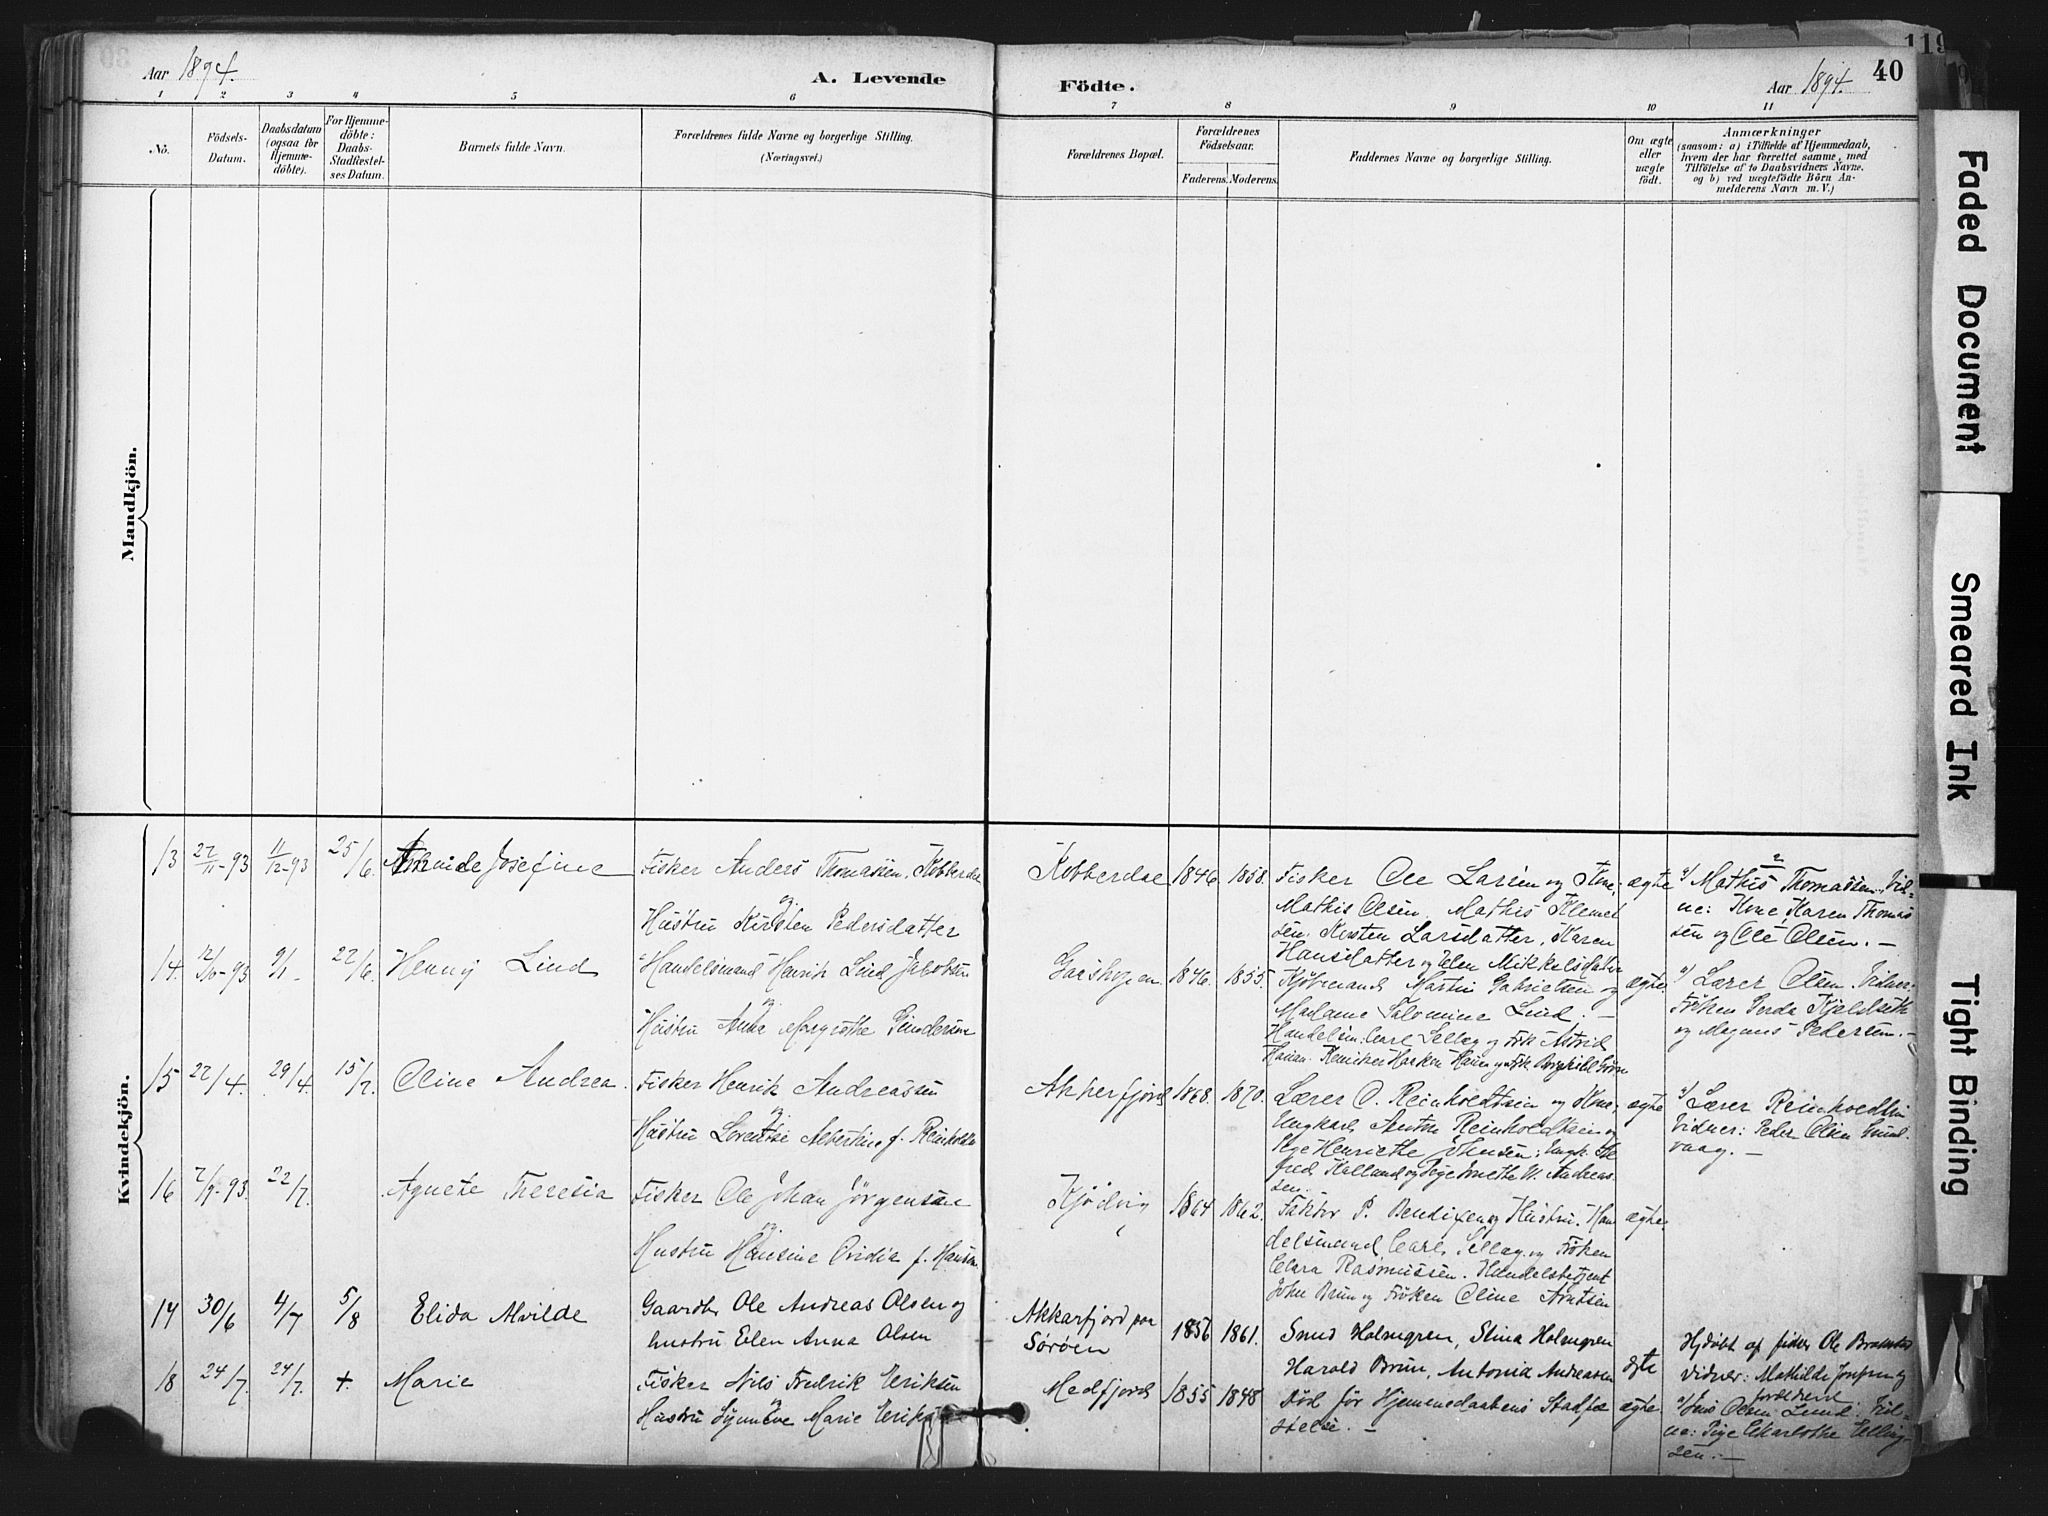 Aar 1894.
A. Levende
Födte.
Aar 1894.
40
119
1 2 3 4 5 6 7 8 9 10 11
No.
Födsels-
Datum.
Daabsdatum
(ogsaa for
Hjemme-
döbte).
For Hjemme-
döbte:
Daabs-
Stadfæstel-
ses Datum.
Barnets fulde Navn.
Forældrenes fulde Navne og borgerlige Stilling.
(Næringsvei.)
Forældrenes Bopæl.
Forældrenes
Födselsaar.
Faderens. Moderens.
Faddernes Navne og borgerlige Stilling.
Om ægte
eller
uægte
födt.
Anmærkninger
(saasom: a) i Tilfælde af Hjemmedaab,
hvem der har forrettet samme, med
Tilföielse af to Daabsvidners Navne,
og b) ved uægtefödte Börn An-
melderens Navn m. V.)
Mandkjön.
Kvindekjön.
13 22/11-93 11/12-93 25/6. Josefine
Fisker Anders Thomassen, Kobberdae
og
Hustru Kirsten Pedersdatter
Kobberdae 1846 1858.
Fisker Ole Larsen og Kone,
Mathis Olsen, Mathis Klemet
sen, Kirsten Larsdatter, Karen
Hansdatter og Elen Mikkelsdatter
ægte
a) Mathis Thomassen. Vid-
ne: Kone Karen Thomas
sen og Ole Olsen. -
14. 12/10-93 9/1 - 22/6. Henny Lind
Handelsmand Henrik Lind Jacobsen
og
Hustru Anna Margrethe
Gaashopen 1846. 1855.
Kjöbmand Martin Gabrielsen og
Madame Salomine Lind. -
Handelsm. Carl og Frk. Astrid
ægte.
a) Lærer Olsen. Vidner:
Fröken Gerda
og Magnus Pedersen. -
15 22/4. 29/4. 15/7. Oline Andrea.
Fisker Henrik Andreassen
og
Hustru Lorentse Albertine f. Reinholdts
Akkerfjord 1868. 1870.
Lærer O. Reinholdtsen og Kone,
Ungkarl Anton Reinholdtsen og
Pige Henriette Johnsen; Ungk.
sen.
ægte
a) Lærer Reinholdtsen
Vidner: Peder Olsen
vaag. -
16 2/9-93. 22/7. Agnete Theresia
Fisker Ole Johan Jörgensen
og
Hustru Hansine Ovidia f. Hansen
Kjödvig 1864 1862.
Faktor P. Bendixen og Hustru, Han
delsmand Carl og Fröken
Clara Rasmussen. Handelsbetjent
John Brun og Fröken Oline Arntsen
ægte
17 30/6 4/7 5/8 Elida Alvilde
Gaardbr. Ole Andreas Olsen og
hustru Elen Anna Olsen
Akkarfjord paa
Söröen 1856 1861.
Holmgren, Stina Holmgren
Harald Brun, Antonia Andreassen
ægte
Hjdöbt af fisker Ole
vidner: Mathilde og
forældrene
18 24/7. 24/7. +. Marie
Fisker Nils Fredrik Eriksen
og
Hustru Synnöve Marie
Medfjord 1855 1848
Död för Hjemmedaabens Stadfæ
stelse. -
ægte
a) Jens Olsen Lund. Vid-
ne: Pige Charlotte Elling-
sen. -
Faded Document
Smeared Ink
Tight Binding